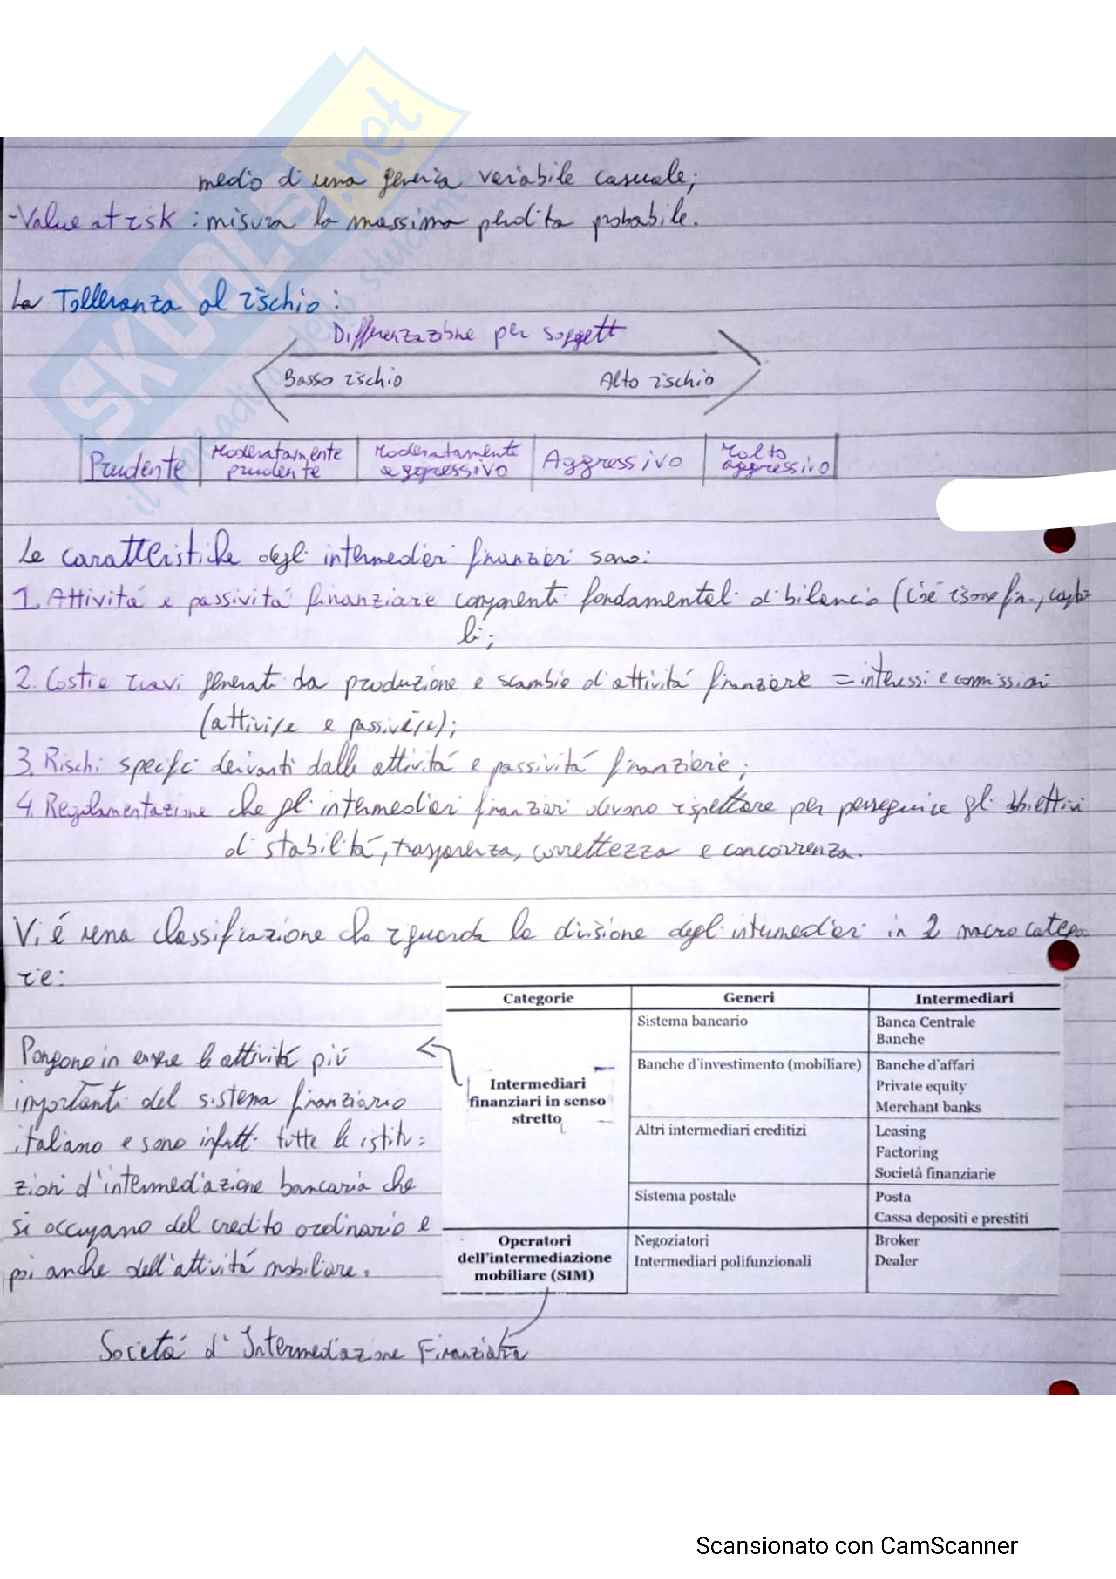 medio di una generica variabile casuale;
-Value at risk : misura la massima perdita probabile.
La Tolleranza al rischio:
Differenziazione per soggetti
Basso rischio Alto rischio
Prudente Moderatamente prudente Moderatamente aggressivo Aggressivo Molto aggressivo
Le caratteristiche degli intermediari finanziari sono:
1. Attivitá e passivitá finanziare componenti fondamentali di bilancio (cioé risorse fin., capita
li;
2. Costi e ricavi generati da produzione e scambio di attivitá finanziarie = interessi e commissioni
(attivi/e e passivi/e);
3. Rischi specifici derivanti dalle attivitá e passivitá finanziarie;
4. Regolamentazione che gli intermediari finanziari devono rispettare per perseguire gli obiettivi
di stabilitá, trasparenza, correttezza e concorrenza.
Vi é una classificazione che riguarda la divisione degli intermediari in 2 macro catego
rie:
Categorie Generi Intermediari
Sistema bancario Banca Centrale
Banche
Banche d'investimento (mobiliare) Banche d'affari
Intermediari Private equity
finanziari in senso Merchant banks
stretto Altri intermediari creditizi Leasing
Factoring
Società finanziarie
Sistema postale Posta
Cassa depositi e prestiti
Operatori Negoziatori Broker
dell'intermediazione Intermediari polifunzionali Dealer
mobiliare (SIM)
Pongono in essere le attivitá piú
importanti del sistema finanziario
italiano e sono infatti tutte le istitu=
zioni d'intermediazione bancaria che
si occupano del credito ordinario e
poi anche dell'attivitá mobiliare.
Societá d'Intermediazione Finanziaria
SKUOLA.net
Scansionato con CamScanner